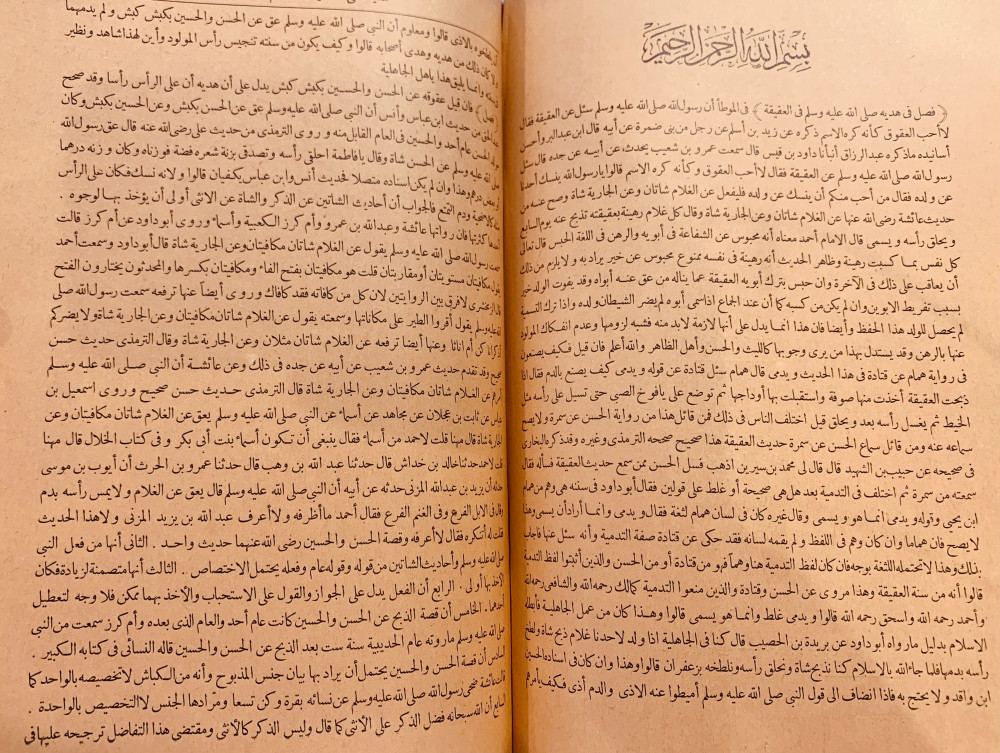 بسم الله الرحمن الرحيم
﴿ فصل فى هديه صلى الله عليه وسلم فى العقيقة ﴾ فى الموطأ أن رسول الله صلى الله عليه وسلم سئل عن العقيقة فقال
لا أحب العقوق كأنه كره الاسم ذكره عن زيد بن أسلم عن رجل من بنى ضمرة عن أبيه قال ابن عبد البر وأحسن
أسانيده ماذكره عبد الرزاق أنبأنا داود بن قيس قال سمعت عمرو بن شعيب يحدث عن أبيه عن جده قال سئل
رسول الله صلى الله عليه وسلم عن العقيقة فقال لا أحب العقوق وكأنه كره الاسم قالوا يارسول الله ينسك أحدنا
عن ولده فقال من أحب منكم أن ينسك عن ولده فليفعل عن الغلام شاتان وعن الجارية شاة وصح عنه من
حديث عائشة رضى الله عنها عن الغلام شاتان وعن الجارية شاة وقال كل غلام رهينة بعقيقته تذبح عنه يوم السابع
ويحلق رأسه ويسمى قال الامام أحمد معناه أنه محبوس عن الشفاعة فى أبويه والرهن فى اللغة الحبس قال تعالى
كل نفس بما كسبت رهينة وظاهر الحديث أنه رهينة فى نفسه ممنوع محبوس عن خير يراد به ولا يلزم من ذلك
أن يعاقب على ذلك فى الآخرة وان حبس بترك أبويه العقيقة عما يناله من عق عنه أبواه وقد يفوت الولد خير
بسبب تفريط الابوين وان لم يكن من كسبه كما أن عند الجماع اذا سمى أبوه لم يضر الشيطان ولده واذا ترك التسمية
لم يحصل للولد هذا الحفظ وأيضا فان هذا انما يدل على أنها لازمة لا بد منه فشبه لزومها وعدم انفكاك المولود
عنها بالرهن وقد يستدل بهذا من يرى وجوبها كالليث والحسن وأهل الظاهر والله أعلم فان قيل فكيف يصنعون
فى رواية همام عن قتادة فى هذا الحديث ويدمى قال همام سئل قتادة عن قوله ويدمى كيف يصنع بالدم فقال اذا
ذبحت العقيقة أخذت منها صوفة واستقبلت بها أوداجها ثم توضع على يافوخ الصبى حتى تسيل على رأسه مثل
الخيط ثم يغسل رأسه بعد ويحلق قيل اختلف الناس فى ذلك فمن قائل هذا من رواية الحسن عن سمرة ولا يصح
سماعه عنه ومن قائل سماع الحسن عن سمرة حديث العقيقة هذا صحيح صححه الترمذى وغيره وقد ذكره البخارى
فى صحيحه عن حبيب بن الشهيد قال قال لى محمد بن سيرين اذهب فسل الحسن ممن سمع حديث العقيقة فسأله فقال
سمعته من سمرة ثم اختلف فى التدمية بعد هل هى صحيحة أو غلط على قولين فقال أبو داود فى سننه هى وهم من همام
ابن يحيى وقوله ويدمى انما هو ويسمى وقال غيره كان فى لسان همام لثغة فقال ويدمى وانما أراد أن يسمى وهذا
لا يصح فان هماما وان كان وهم فى اللفظ ولم يقمه لسانه فقد حكى عن قتادة صفة التدمية وأنه سئل عنها فأجاب
بذلك وهذا لا تحتمله اللثغة بوجه فان كان لفظ التدمية هنا وهما فهو من قتادة أو من الحسن والذين أثبتوا لفظ التدمية
قالوا أنه من سنة العقيقة وهذا مروى عن الحسن وقتادة والذين منعوا التدمية كمالك رحمه الله والشافعى رحمه الله
وأحمد رحمه الله واسحق رحمه الله قالوا ويدمى غلط وانما هو يسمى قالوا وهذا كان من عمل الجاهلية فأبطله
الاسلام بدليل مارواه أبو داود عن بريدة بن الحصيب قال كنا فى الجاهلية اذا ولد لاحدنا غلام ذبح شاة ولطخ
رأسه بدمها فلما جاء الله بالاسلام كنا نذبح شاة ونحلق رأسه ونلطخه بزعفران قالوا وهذا وان كان فى اسناده الحسين
ابن واقد ولا يحتج به فاذا انضاف الى قول النبى صلى الله عليه وسلم أميطوا عنه الاذى والدم أذى فكيف يأمرهم
أن يلطخوه بالاذى قالوا ومعلوم أن النبى صلى الله عليه وسلم عق عن الحسن والحسين بكبش كبش ولم يدمهما
ولا كان ذلك من هديه وهدى أصحابه قالوا وكيف يكون من سنته تنجيس رأس المولود وأين لهذا شاهد ونظير
فى سنته وانما يليق هذا باهل الجاهلية
﴿ فصل ﴾ فان قيل عقوقه عن الحسن والحسين بكبش كبش يدل على أن هديه أن على الرأس رأسا وقد صحح
عبد الحق من حديث ابن عباس وأنس أن النبى صلى الله عليه وسلم عق عن الحسن بكبش وعن الحسين بكبش وكان
مولد الحسن عام أحد والحسين فى العام القابل منه وروى الترمذى من حديث على رضى الله عنه قال عق رسول الله
صلى الله عليه وسلم عن الحسن شاة وقال يافاطمة احلقى رأسه وتصدقى بزنة شعره فضة فوزناه وكان وزنه درهما
أو بعض درهم وهذا وان لم يكن اسناده متصلا فحديث أنس وابن عباس يكفيان قالوا ولانه نسك فكان على الرأس
مثله كالاضحية ودم التمتع فالجواب أن أحاديث الشاتين عن الذكر والشاة عن الانثى أولى أن يؤخذ بها لوجوه .
أحدها كثرتها فان رواتها عائشة وعبد الله بن عمرو وأم كرز الكعبية وأسماء وروى أبو داود عن أم كرز قالت
سمعت رسول الله صلى الله عليه وسلم يقول عن الغلام شاتان مكافيتان وعن الجارية شاة قال أبو داود وسمعت أحمد
يقول مكافيتان مستويتان أو مقاربتان قلت هو مكافيتان بفتح الفاء ومكافيتان بكسرها والمحدثون يختارون الفتح
قال الزمخشرى لا فرق بين الروايتين لان كل من كافأته فقد كافاك وروى أيضاً عنها ترفعه سمعت رسول الله صلى
الله عليه وسلم يقول أقروا الطير على مكاناتها وسمعته يقول عن الغلام شاتان مكافيتان وعن الجارية شاة ولا يضركم
أذكرانا كن أم اناثا وعنها أيضا ترفعه عن الغلام شاتان مثلان وعن الجارية شاة وقال الترمذى حديث حسن
صحيح وقد تقدم حديث عمرو بن شعيب عن أبيه عن جده فى ذلك وعن عائشة أن النبى صلى الله عليه وسلم
أمرهم عن الغلام شاتان مكافيتان وعن الجارية شاة قال الترمذى حديث حسن صحيح وروى اسمعيل بن
عياش عن ثابت بن عجلان عن مجاهد عن أسماء عن النبى صلى الله عليه وسلم يعق عن الغلام شاتان مكافيتان وعن
الجارية شاة قال مهنا قلت لاحمد من أسماء فقال ينبغى أن تكون أسماء بنت أبى بكر وفى كتاب الخلال قال مهنا
قلت لاحمد حدثنا خالد بن خداش قال حدثنا عبد الله بن وهب قال حدثنا عمرو بن الحرث أن أيوب بن موسى
حدثه أن يزيد بن عبد الله المزنى حدثه عن أبيه أن النبى صلى الله عليه وسلم قال يعق عن الغلام ولا يمس رأسه بدم
وقال فى الابل الفرع وفى الغنم الفرع فقال أحمد ما أظرفه ولا أعرف عبد الله بن يزيد المزنى ولا هذا الحديث
فقلت له أتنكره فقال لا أعرفه وقصة الحسن والحسين رضى الله عنهما حديث واحد . الثانى أنها من فعل النبى
صلى الله عليه وسلم وأحاديث الشاتين من قوله وقوله عام وفعله يحتمل الاختصاص . الثالث أنها متضمنة لزيادة فكان
الاخذ بها أولى . الرابع أن الفعل يدل على الجواز والقول على الاستحباب والآخذ بهما ممكن فلا وجه لتعطيل
أحدهما . الخامس أن قصة الذبح عن الحسن والحسين كانت عام أحد والعام الذى بعده وأم كرز سمعت من النبى
صلى الله عليه وسلم ماروته عام الحديبية سنة ست بعد الذبح عن الحسن والحسين قاله النسائى فى كتابه الكبير .
السادس أن قصة الحسن والحسين يحتمل أن يراد بها بيان جنس المذبوح وأنه من الكباش لا تخصيصه بالواحد كما
قالت عائشة ضحى رسول الله صلى الله عليه وسلم عن نسائه بقرة وكن تسعا ومرادها الجنس لا التخصيص بالواحدة .
السابع أن الله سبحانه فضل الذكر على الانثى كما قال وليس الذكر كالانثى ومقتضى هذا التفاضل ترجيحه عليها فى